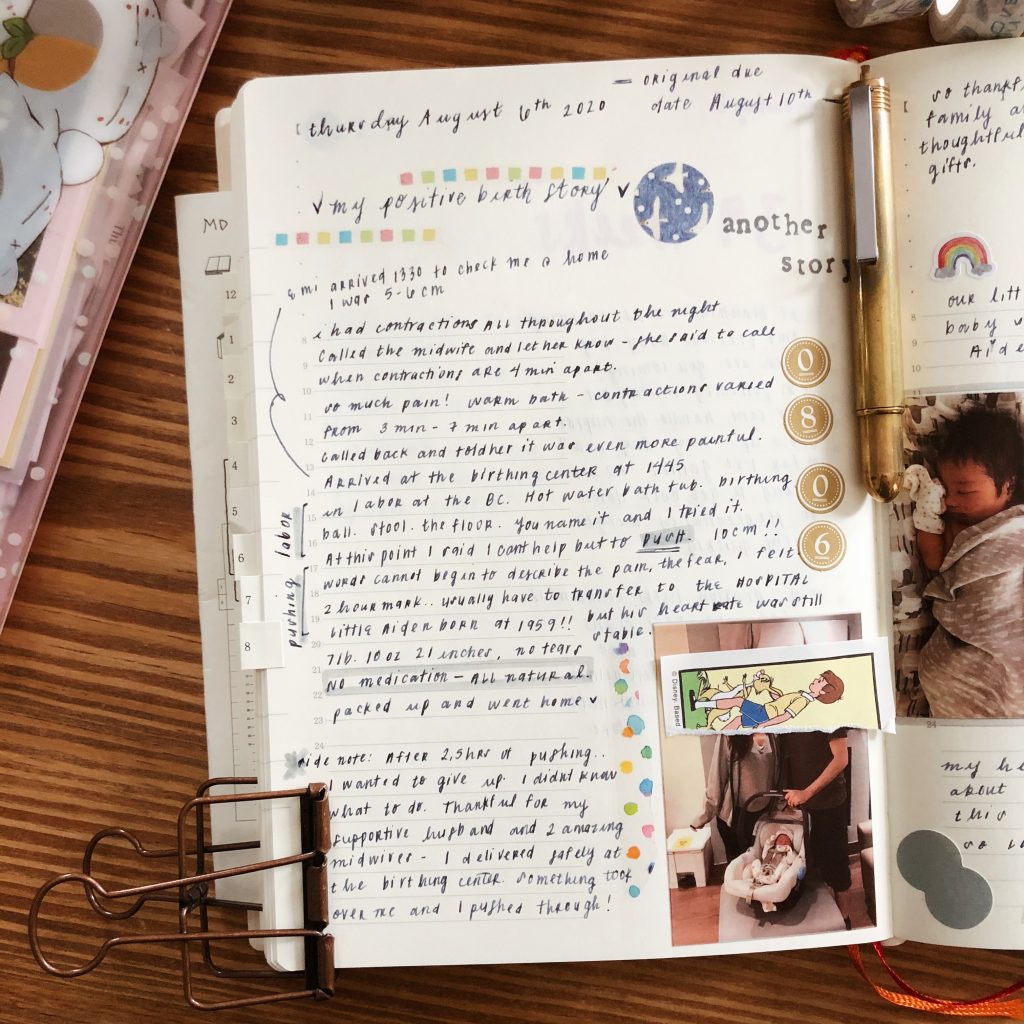 thursday August 6th 2020
— original due
date August 10th
my positive birth story
another
story
Emi arrived 1330 to check me @ home
I was 5-6cm
i had contractions All throughout the night
called the midwife and let her know - she said to call
when contractions are 4 min apart.
so much pain! warm bath - contractions varied
from 3 min - 7 min apart.
called back and told her it was even more painful.
Arrived at the birthing center at 1445
in labor at the BC. Hot water bath tub. birthing
ball. stool. the floor. you name it and I tried it.
At this point I said I cant help but to push. 10cm!!
words cannot begin to describe the pain, the fear, I felt
2 hour mark.. usually have to transfer to the HOSPITAL
but his heart rate was still
stable.
Little Aiden born at 1959!!
7lb. 10 oz 21 inches, no tears
NO medication - All natural.
packed up and went home
side note: After 2,5hrs of pushing..
I wanted to give up. I didnt know
what to do. Thankful for my
supportive husband and 2 amazing
midwives - I delivered safely at
the birthing center. something took
over me and I pushed through!
labor
pushing
0
8
0
6
© Disney. Based
MD
12
1
2
3
4
5
6
7
8
8
9
10
11
12
13
14
15
16
17
18
19
20
21
22
23
24
so
family
thoughtful
gifts.
our
baby
9
10
11
24
my
about
this
so